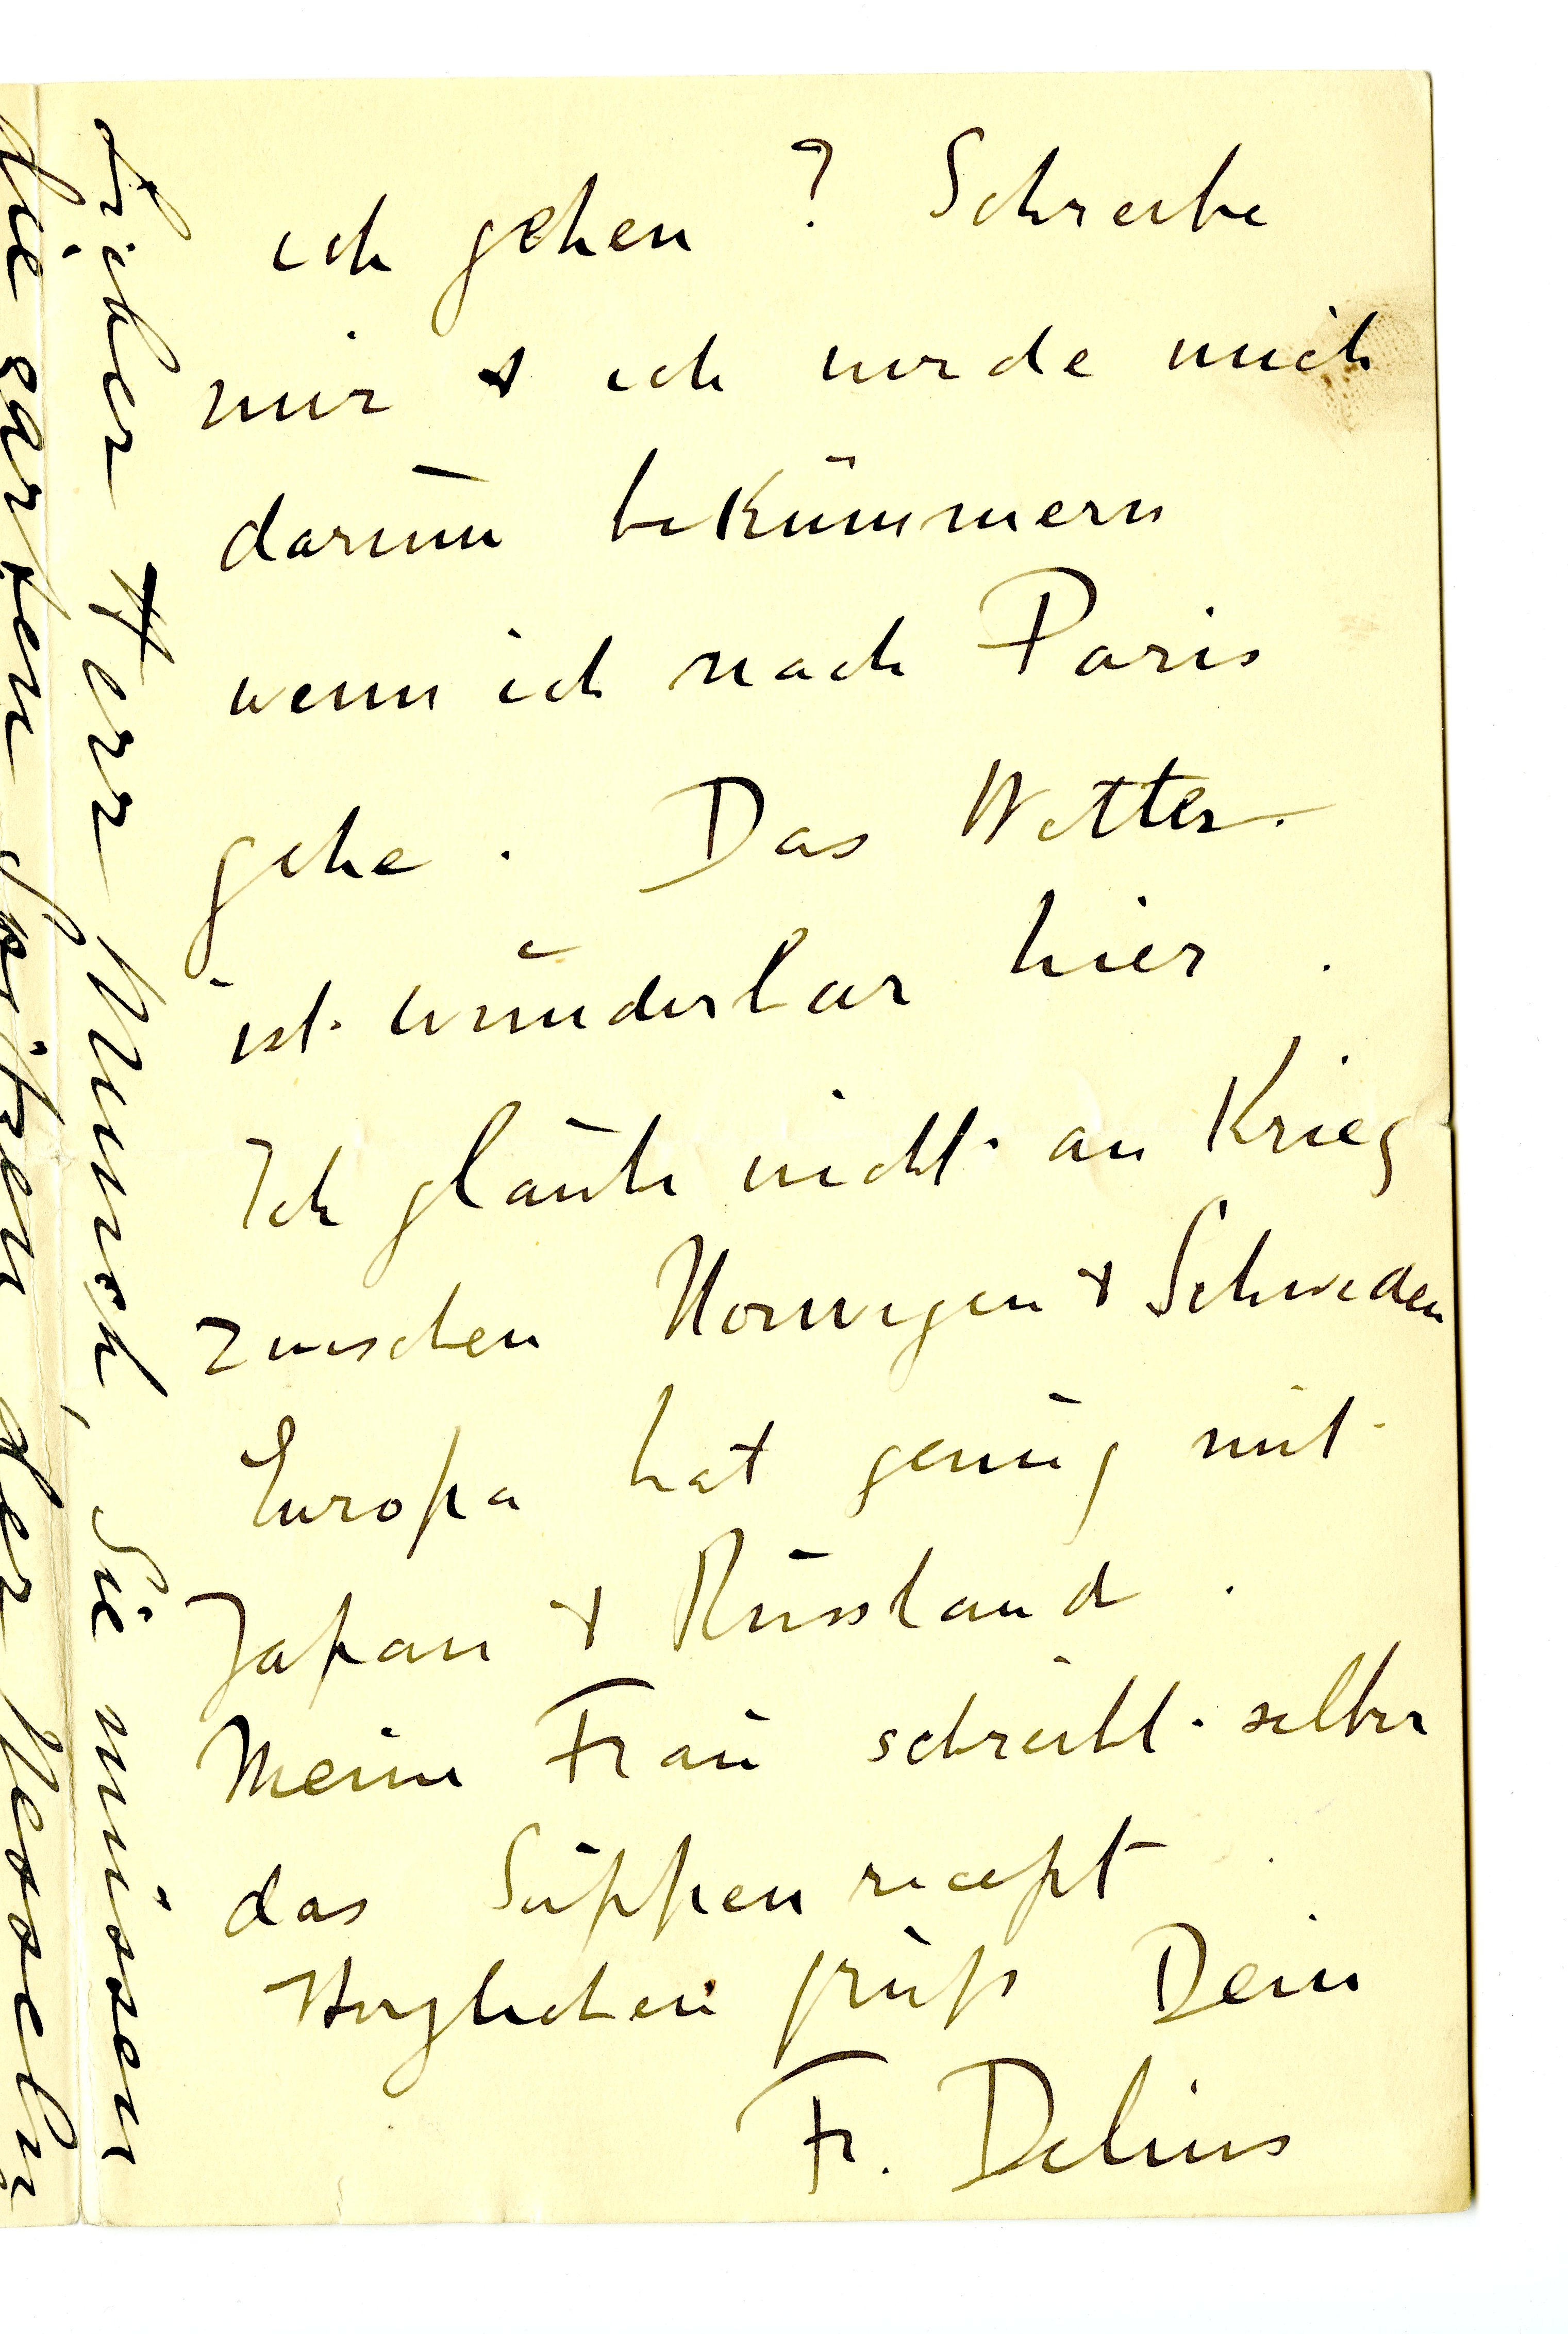 ich gehen? Schreibe
mir & ich werde mich
darum bekümmern
wenn ich nach Paris
gehe. Das Wetter
ist wunderbar hier.
Ich glaube nicht an Krieg
zwischen Norwegen & Schweden
Europa hat genug mit
Japan & Russland.
Meine Frau schreibt selber
das Suppenrecept.
Herzlichen gruss Dein
Fr. Delius
Lieber Herr Munch, Sie müssen
die zarten Spitzen der Nesseln